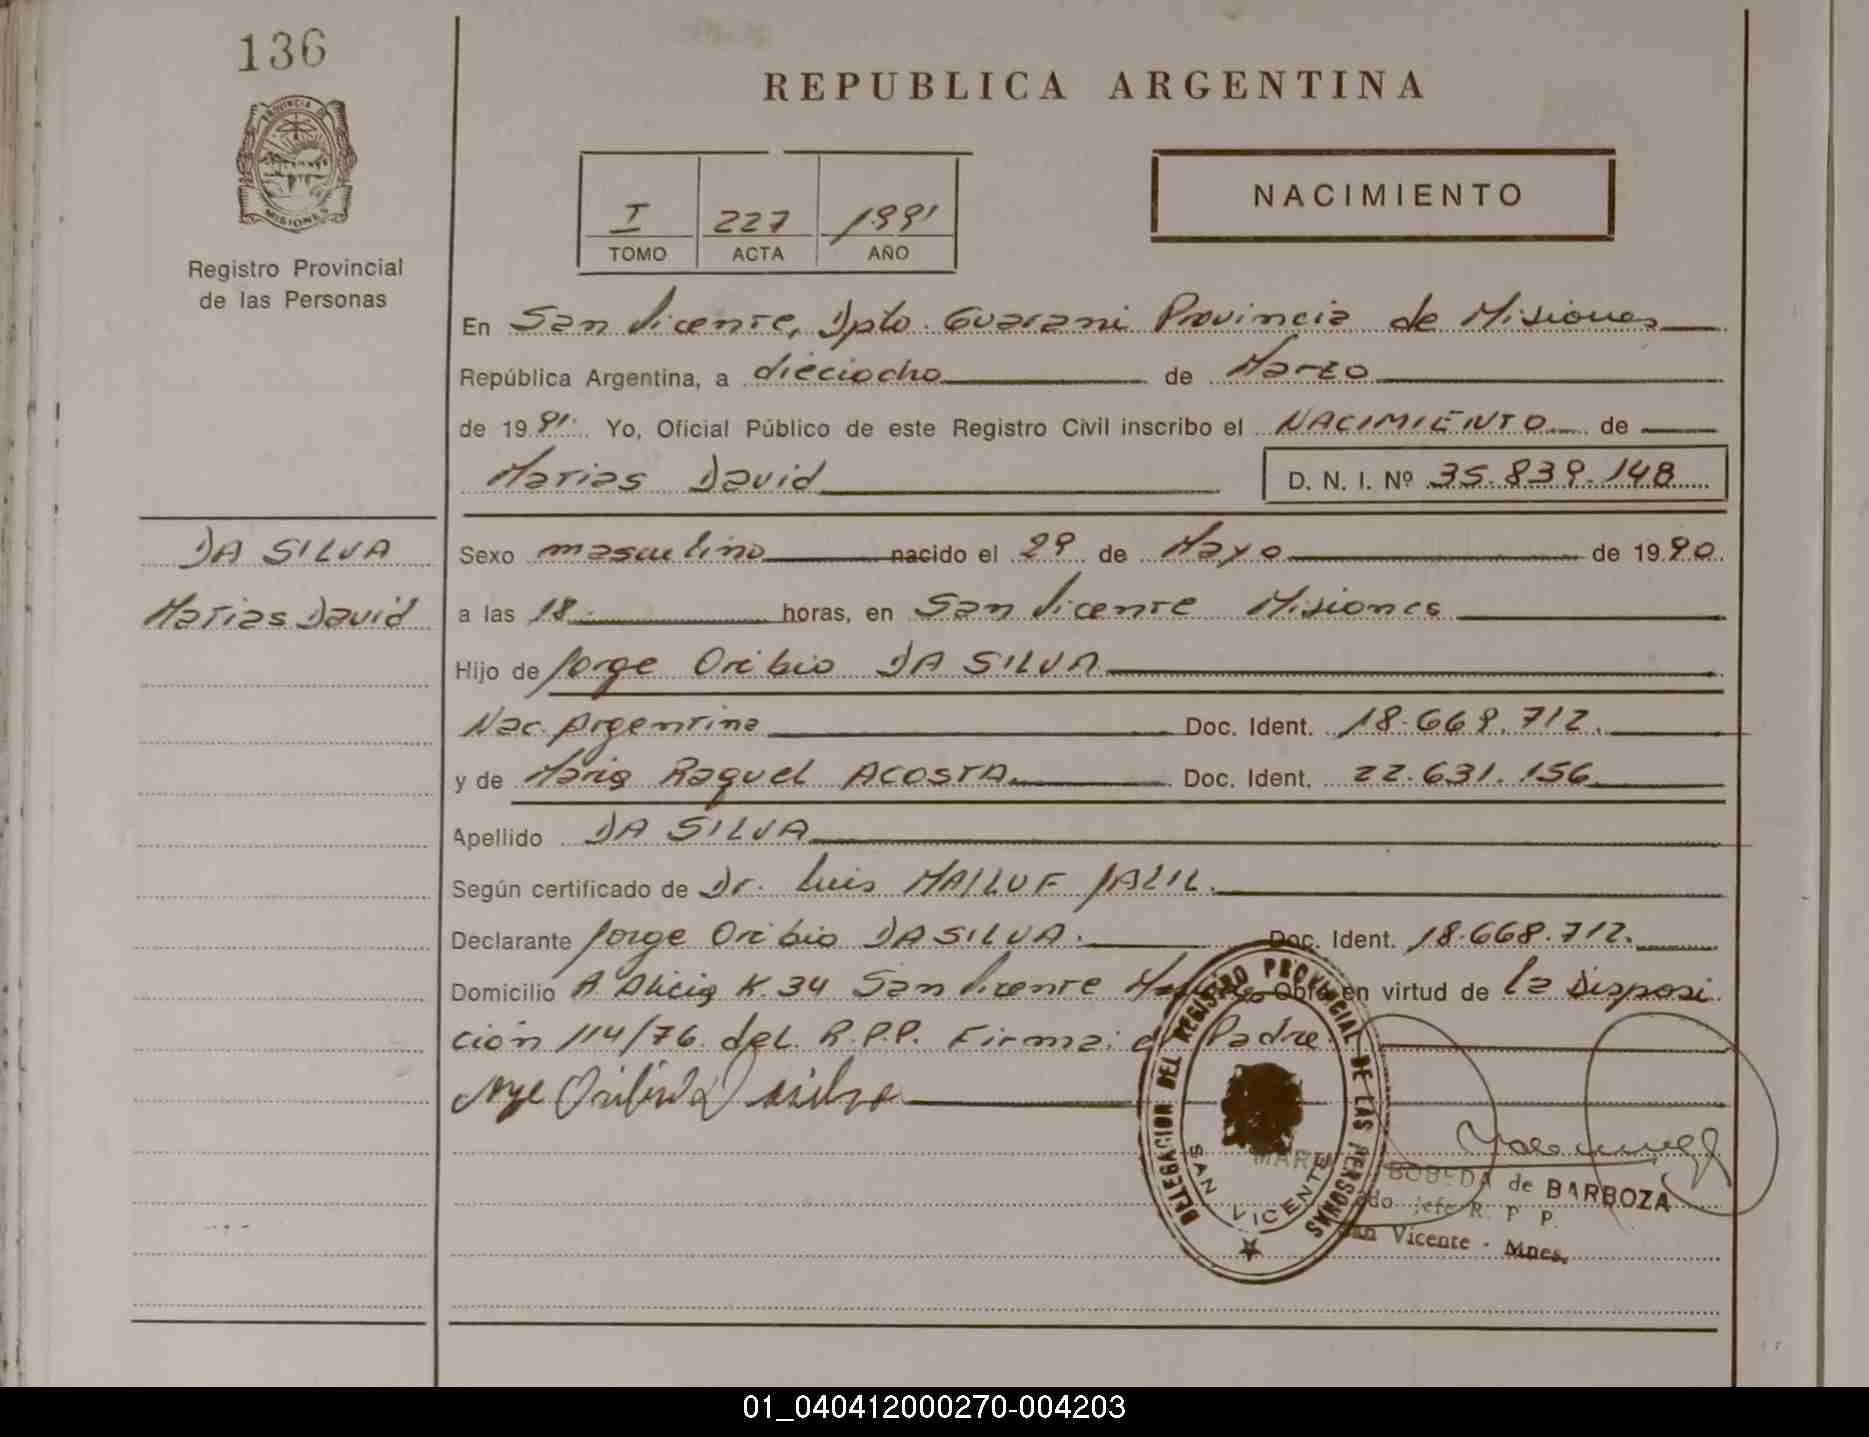 136
REPUBLICA ARGENTINA
PROVINCIA DE
MISIONES
Registro Provincial
de las Personas
I 227 1991
TOMO ACTA AÑO
NACIMIENTO
En San Vicente, Dpto. Guarani Provincia de Misiones
República Argentina, a dieciocho de Marzo
de 1991. Yo, Oficial Público de este Registro Civil inscribo el NACIMIENTO de
Matias David D. N. I. Nº 35.839.148
DA SILVA
Matias David
Sexo masculino nacido el 29 de Mayo de 1990.
a las 18. horas, en San Vicente Misiones
Hijo de Jorge Oribio DA SILVA
Nac. Argentina Doc. Ident. 18.668.712.
y de Maria Raquel ACOSTA Doc. Ident. 22.631.156
Apellido DA SILVA
Según certificado de Dr. Luis MAILUF JALIL.
Declarante Jorge Oribio DA SILVA. Doc. Ident. 18.668.712.
Domicilio A. Alicia K.34 San Vicente Obro en virtud de la Disposi
ción 114/76 del R.P.P. Firma: el Padre
DELEGACION DEL REGISTRO PROVINCIAL DE LAS PERSONAS
SAN VICENTE
BOBEDA de BARBOZA
jefe R. P. P.
San Vicente - Mnes.
01_040412000270-004203